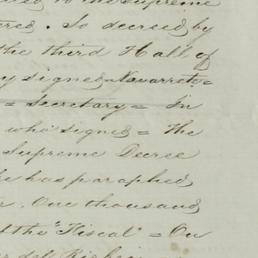 to the Supreme
So decreed by
the third Hall of
signed Navarrete =
= Secretary = In
who signed = The
Supreme Decree
has paraphed
One thousand
the "Fiscal" = On